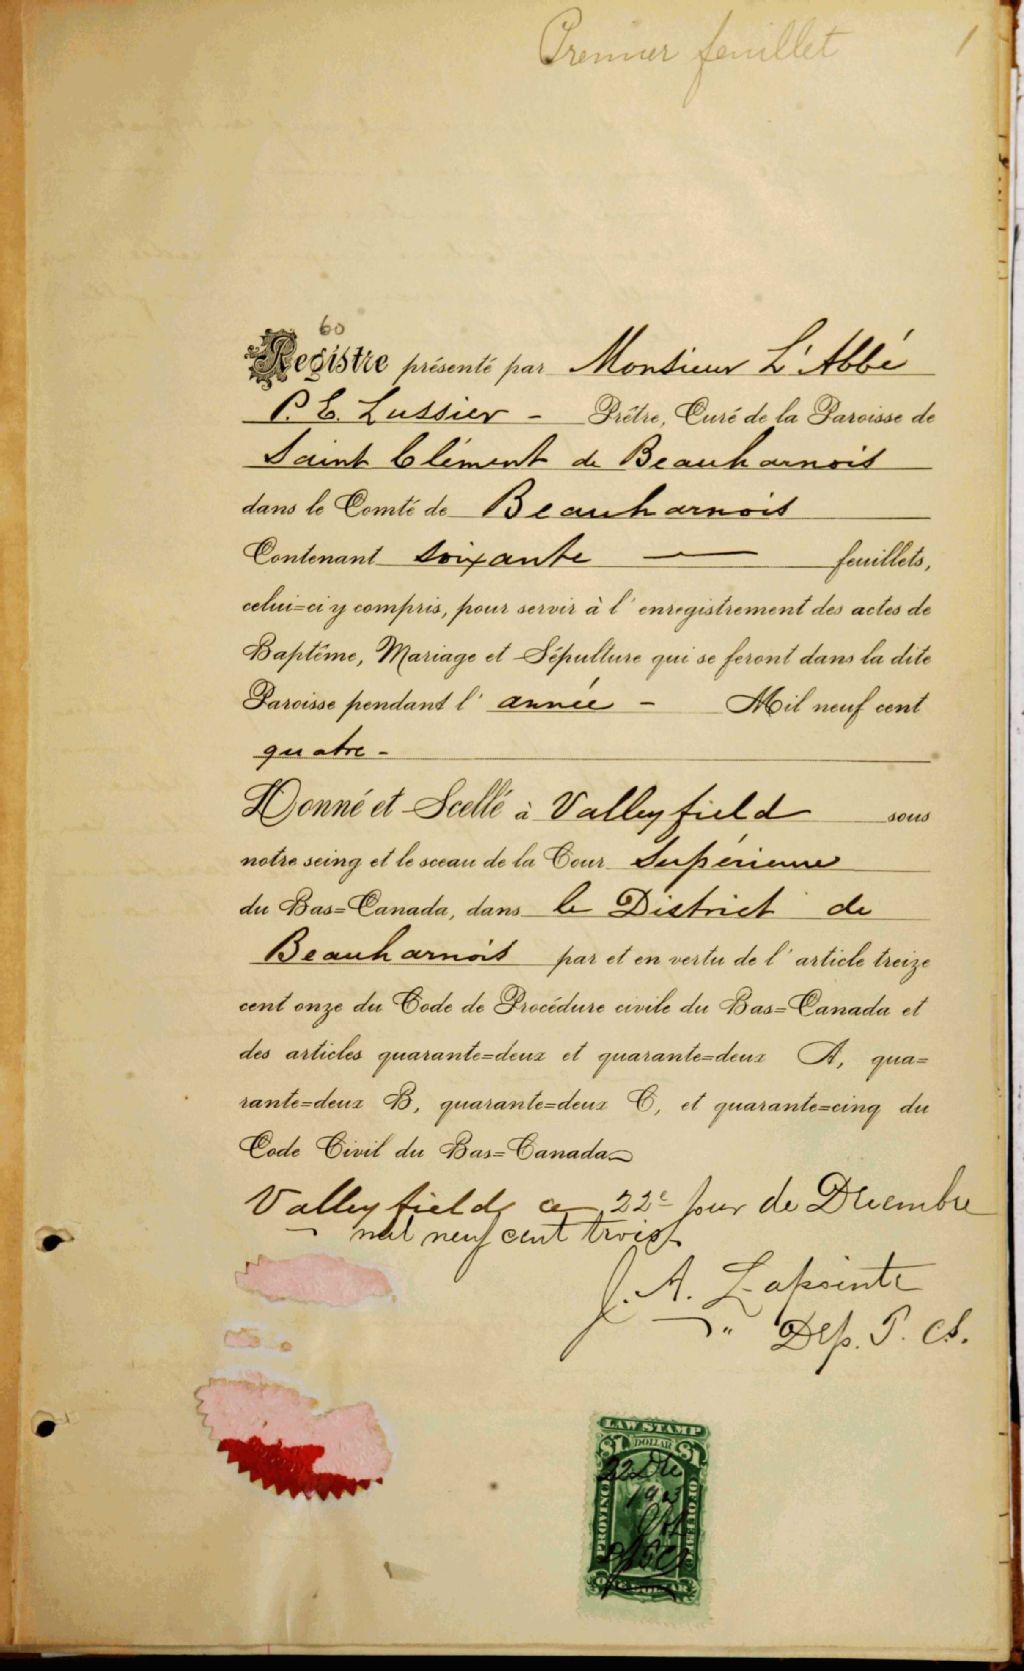 Premier feuillet 1
60
Registre présenté par Monsieur L'Abbé
P. E. Lussier - Prêtre, Curé de la Paroisse de
Saint Clément de Beauharnois
dans le Comté de Beauharnois
Contenant soixante — feuillets,
celui=ci y compris, pour servir à l'enregistrement des actes de
Baptême, Mariage et Sépulture qui se feront dans la dite
Paroisse pendant l'année - Mil neuf cent
quatre -
Donné et Scellé à Valleyfield sous
notre seing et le sceau de la Cour Supérieure
du Bas=Canada, dans le District de
Beauharnois par et en vertu de l'article treize
cent onze du Code de Procédure civile du Bas=Canada et
des articles quarante=deux et quarante=deux A, qua=
rante=deux B, quarante=deux C, et quarante=cinq du
Code Civil du Bas=Canada
Valleyfield, ce 22e jour de Décembre
mil neuf cent trois
J. A. Lapointe
" Dép. P. C.S.
LAW STAMP
$1 DOLLAR $1
PROVINCE OF QUEBEC
22 Dec
1903